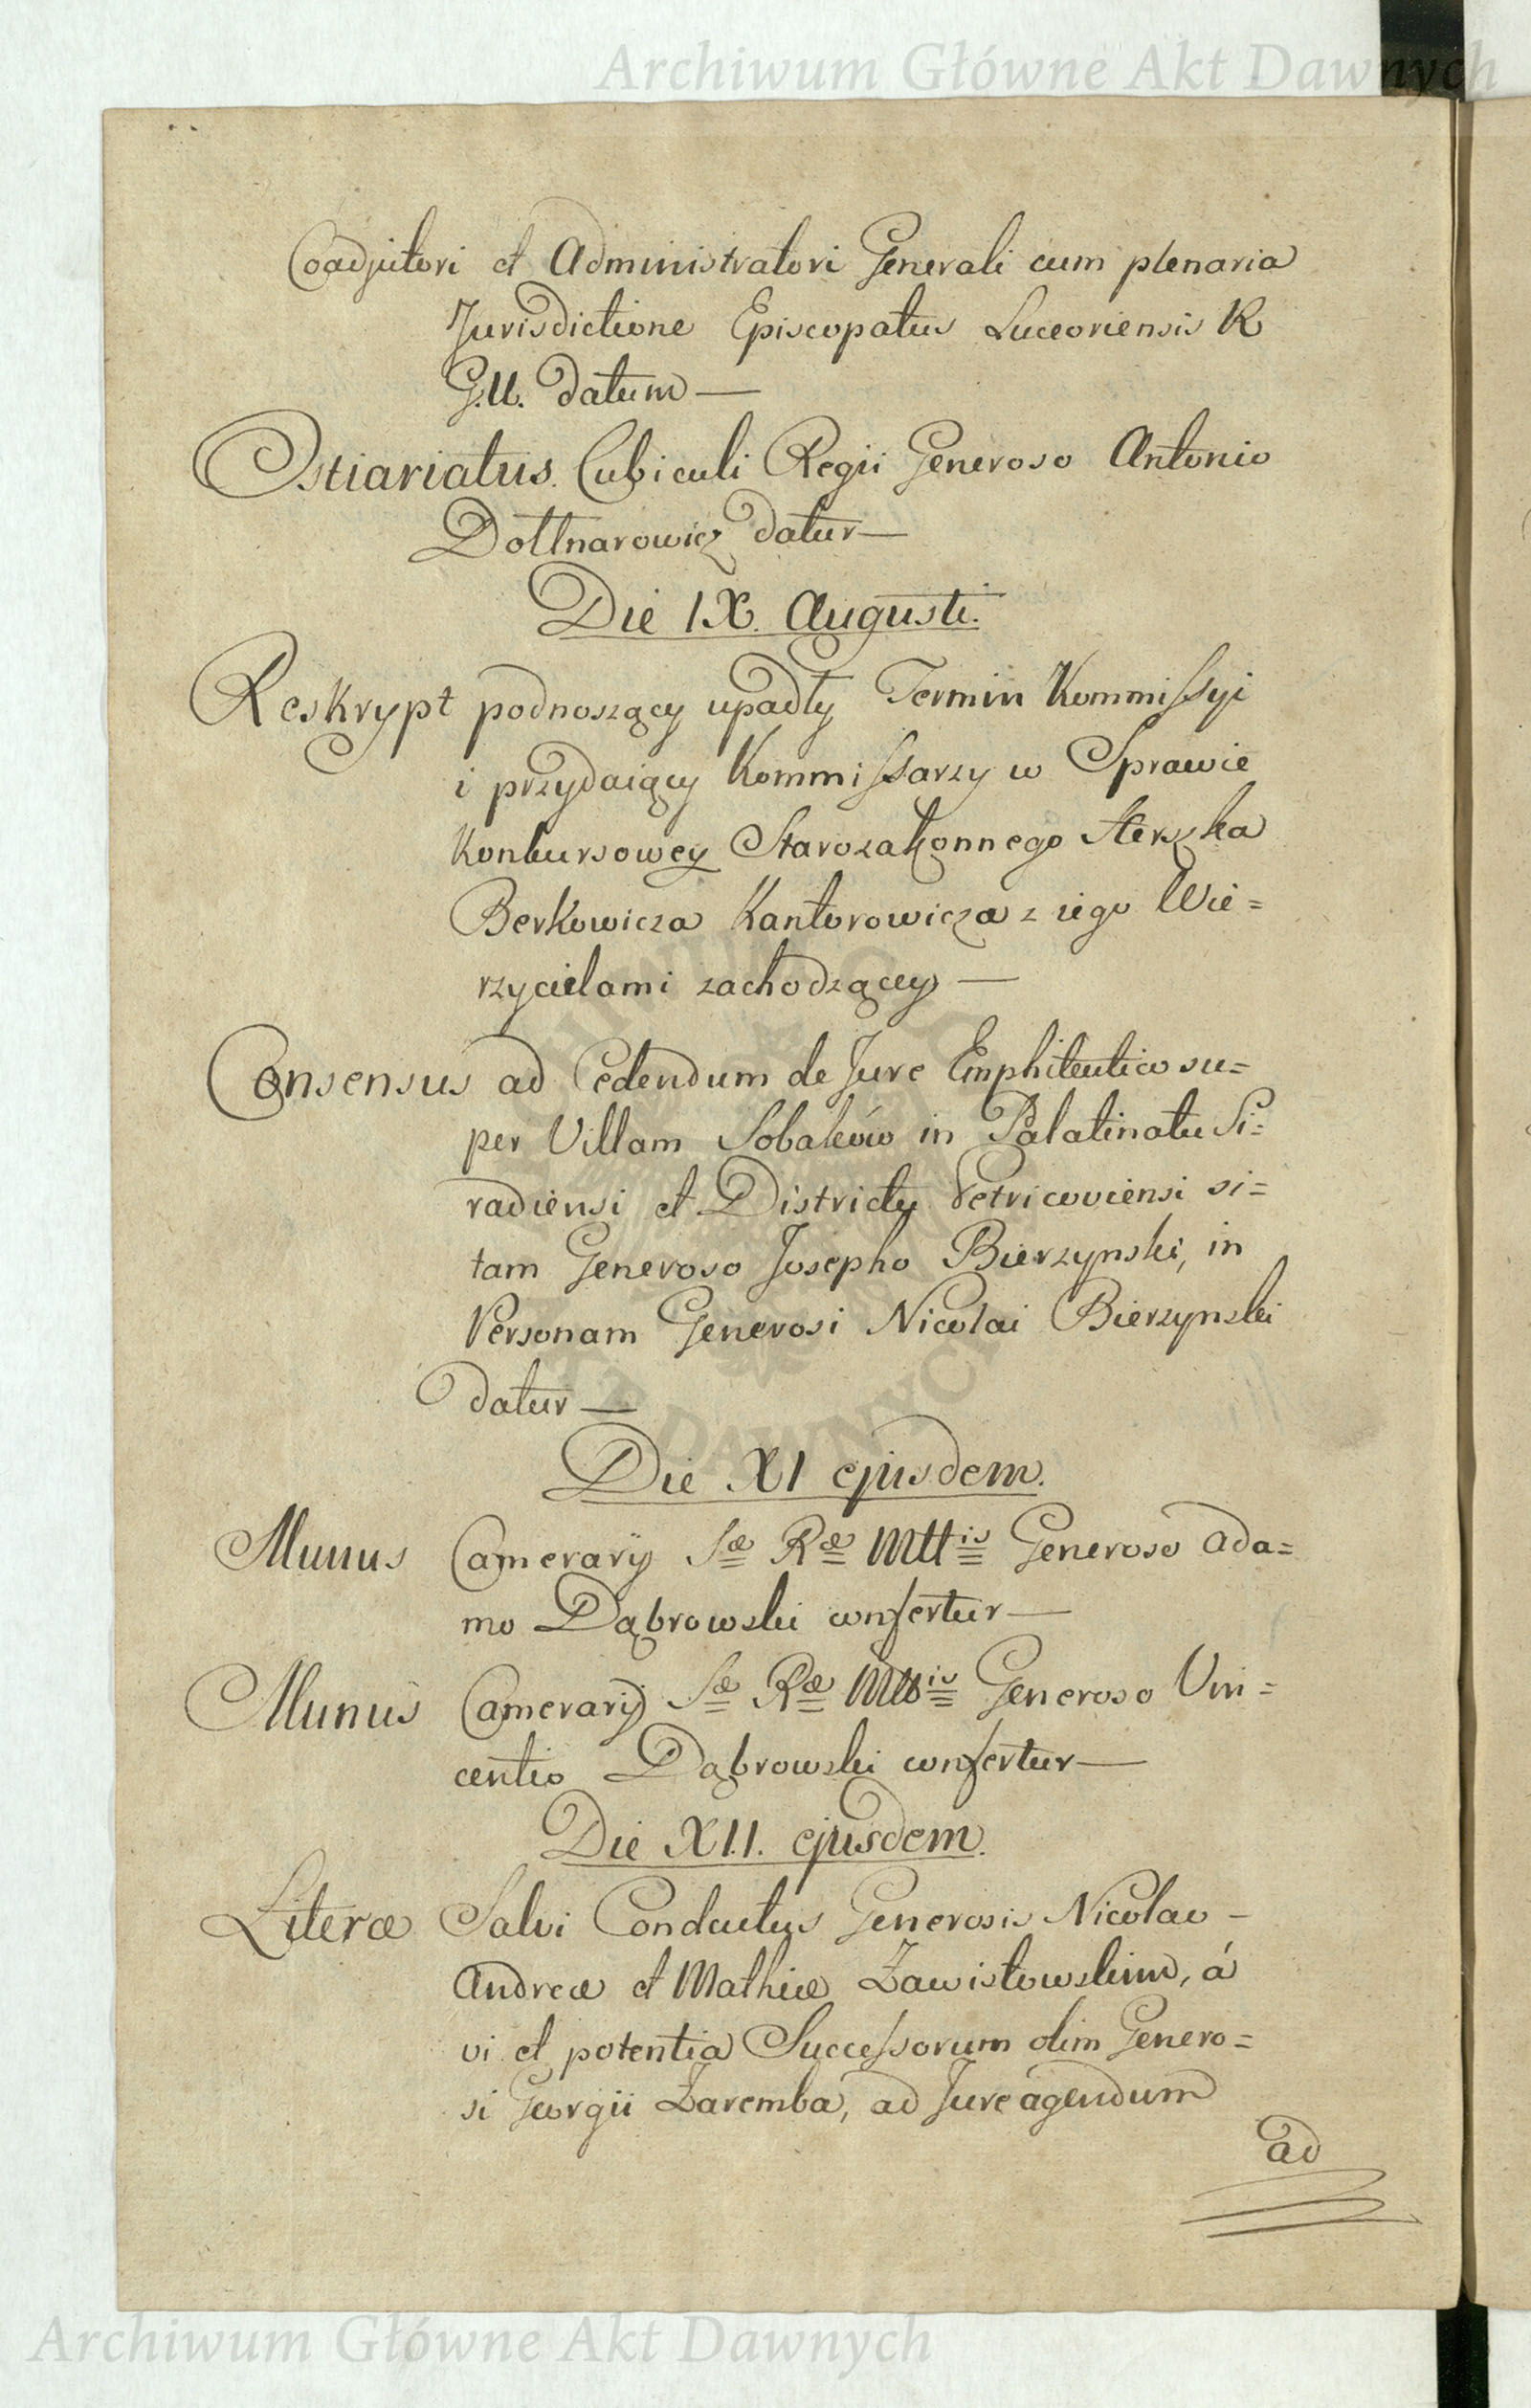 Archiwum Główne Akt Dawnych
Coadjutori et Administratori Generali cum plenaria
Jurisdictione Episcopatus Luceoriensis R
G.U. datum —
Ostiariatus Cubiculi Regii Generoso Antonio
Dottnarowicz datur —
Die IX. Augusti.
Reskrypt podnoszący upadły Termin Kommissyi
i przydaiący Kommissarzy w Sprawie
Konkursowey Starozakonnego Herszka
Berkowicza Kantorowicza z iego Wie=
rzycielami zachodzącey —
Consensus ad Cedendum de Jure Emphiteutico su=
per Villam Sobaków in Palatinatu Si=
radiensi et Districtu Petricoviensi si=
tam Generoso Josepho Bierzynski, in
Personam Generosi Nicolai Bierzynski
datur —
Die XI ejusdem.
Munus Camerarij Sæ Ræ Mttis Generoso Ada=
mo Dąbrowski confertur —
Munus Camerarij Sæ Ræ Mttis Generoso Vin=
centio Dąbrowski confertur —
Die XII. ejusdem.
Literæ Salvi Conductus Generosis Nicolao –
Andreæ et Mathiæ Zawistowskim, á
vi et potentia Successorum olim Genero=
si Georgii Zaremba, ad Jure agendum
ad
Archiwum Główne Akt Dawnych